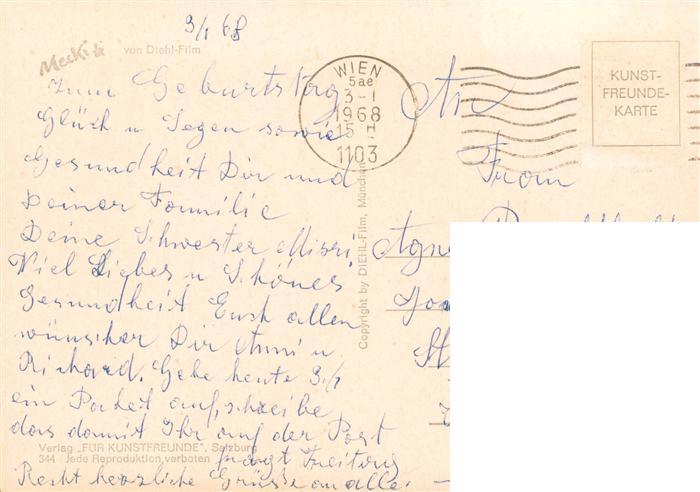 3/1 68
Mecki
von Diehl-Film
Zum Geburtstag
Glück u Segen sowie
Gesundheit Dir und
Deiner Familie
Deine Schwester Misri.
Viel Liebes u Schönes
Gesundheit Euch allen
wünschen Dir Anni u
Richard. Gebe heute 3/1
ein Packet auf, schreibe
das damit Ihr auf der Post
fragt Freitag
Recht herzliche Grüsse an alle.
Verlag „FÜR KUNSTFREUNDE", Salzburg
344 - Jede Reproduktion verboten
Copyright by DIEHL-Film, München
WIEN
5ae
3-1
1968
15 H
1103
KUNST-
FREUNDE-
KARTE
An
Frau